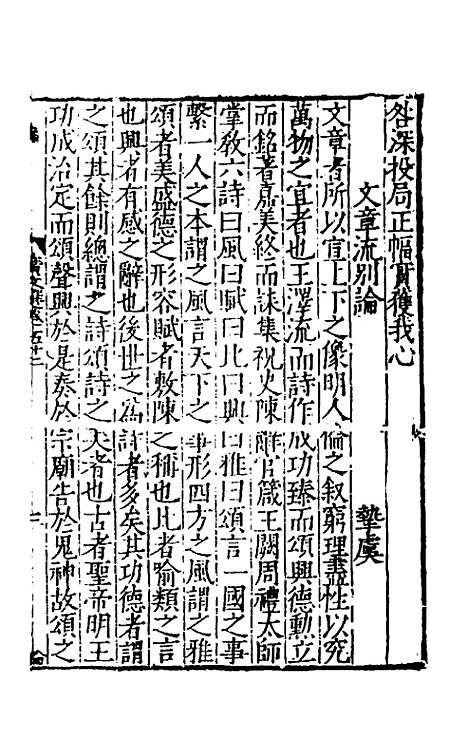 咎深投局正幅實獲我心
文章流別論 摯虞
文章者所以宣上下之像明人倫之叙窮理盡性以究
萬物之宜者也王澤流而詩作成功臻而頌興德勲立
而銘著嘉美終而誄集祝史陳辭官箴王闕周禮太師
掌敎六詩曰風曰賦曰比曰興曰雅曰頌言一國之事
繫一人之本謂之風言天下之事形四方之風謂之雅
頌者美盛德之形容賦者敷陳之稱也比者喻類之言
也興者有感之辭也後世之爲詩者多矣其功德者謂
之頌其餘則總謂之詩頌詩之美者也古者聖帝明王
功成治定而頌聲興於是奏於宗廟告於鬼神故頌之